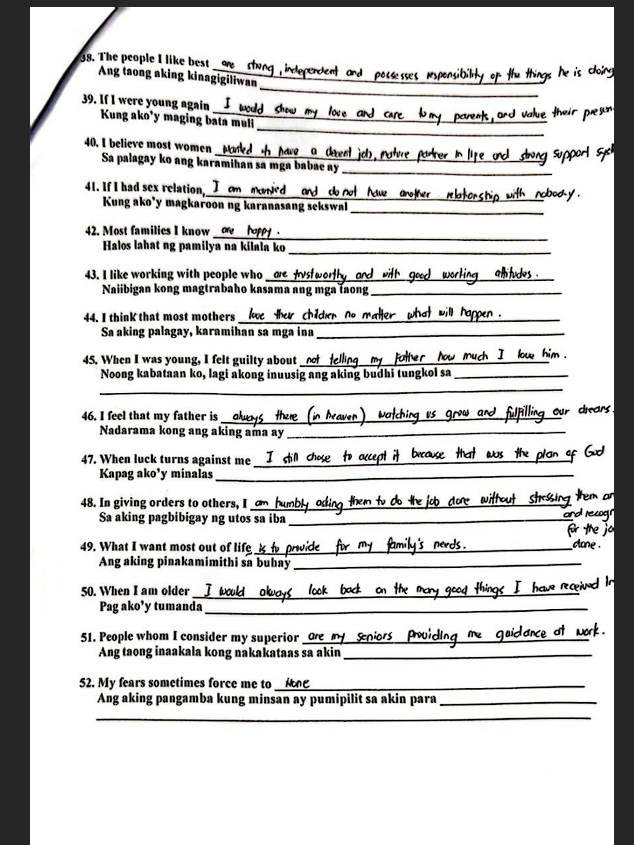 38. The people I like best are strong, independent and possesses responsibility of the things he is doing
Ang taong aking kinagigiliwan
39. If I were young again I would show my love and care to my parents, and value their presen
Kung ako'y maging bata muli
40. I believe most women wanted to have a decent job, mature partner in life and strong support syst
Sa palagay ko ang karamihan sa mga babae ay
41. If I had sex relation, I am married and do not have another relationship with nobody.
Kung ako'y magkaroon ng karanasang sekswal
42. Most families I know are happy.
Halos lahat ng pamilya na kilala ko
43. I like working with people who are trustworthy and with good working attitudes.
Naiibigan kong magtrabaho kasama ang mga taong
44. I think that most mothers love their children no matter what will happen.
Sa aking palagay, karamihan sa mga ina
45. When I was young, I felt guilty about not telling my father how much I love him.
Noong kabataan ko, lagi akong inuusig ang aking budhi tungkol sa
46. I feel that my father is always there (in heaven) watching us grow and fulfilling our dreams.
Nadarama kong ang aking ama ay
47. When luck turns against me I still chose to accept it because that was the plan of God
Kapag ako'y minalas
48. In giving orders to others, I am humbly asking them to do the job done without stressing them an
Sa aking pagbibigay ng utos sa iba
and recogn
for the jo
done.
49. What I want most out of life is to provide for my family's needs.
Ang aking pinakamimithi sa buhay
50. When I am older I would always look back on the many good things I have received in
Pag ako'y tumanda
51. People whom I consider my superior are my seniors providing me guidance at work.
Ang taong inaakala kong nakakataas sa akin
52. My fears sometimes force me to None
Ang aking pangamba kung minsan ay pumipilit sa akin para